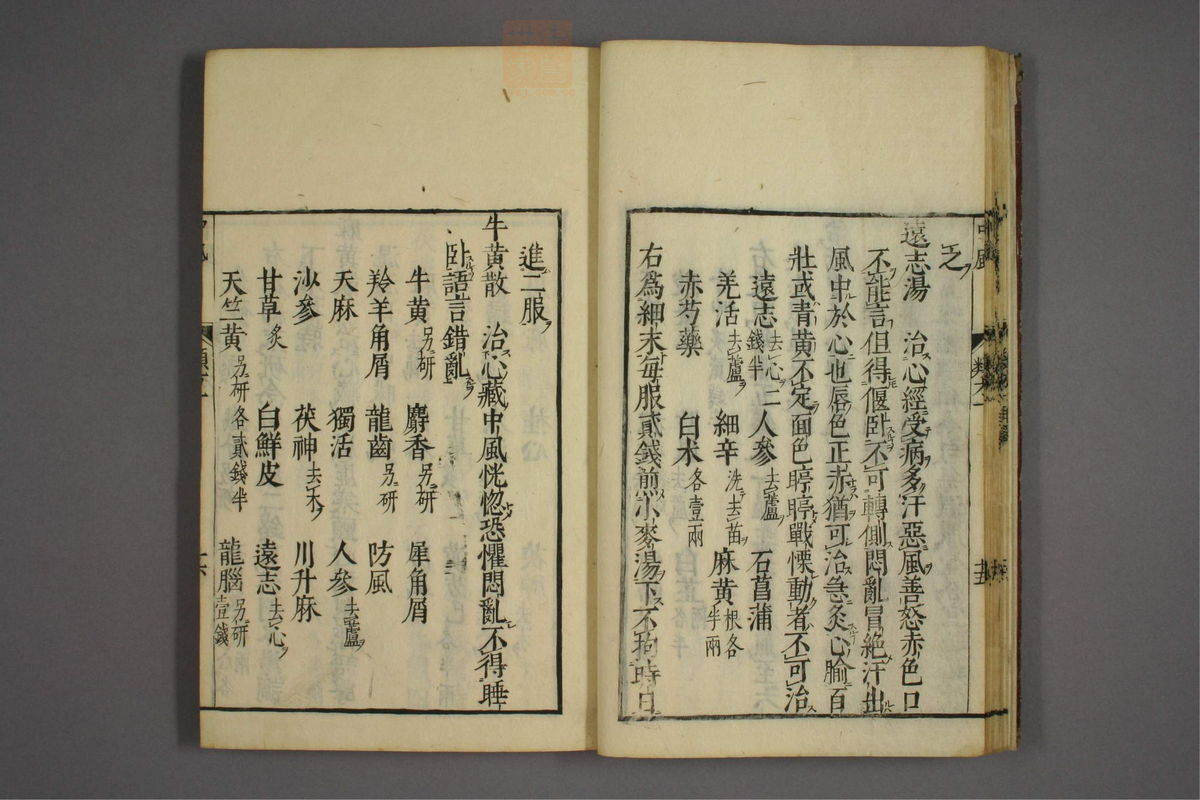 乏
遠志湯 治心經受病多汗惡風善怒赤色口
不能言但得偃卧不可轉側悶亂冒絶汗出
風中於心也唇色正赤猶可治急灸心腧百
壯或青黄不定面色𥆧𥆧戰慄動者不可治
遠志去心二錢半 人參去蘆 石菖蒲
羌活去蘆 細辛洗去苗 麻黄根各半兩
赤芍藥 白朮各壹兩
右爲細末每服貳錢煎小麥湯下不拘時日
進二服
牛黄散 治心藏中風恍惚恐懼悶亂不得睡
卧語言錯亂
牛黄另研 麝香另研 犀角屑
羚羊角屑 龍齒另研 防風
天麻 獨活 人參去蘆
沙參 茯神去木 川升麻
甘草炙 白鮮皮 遠志去心
天竺黄另研各貳錢半 龍腦另研壹錢